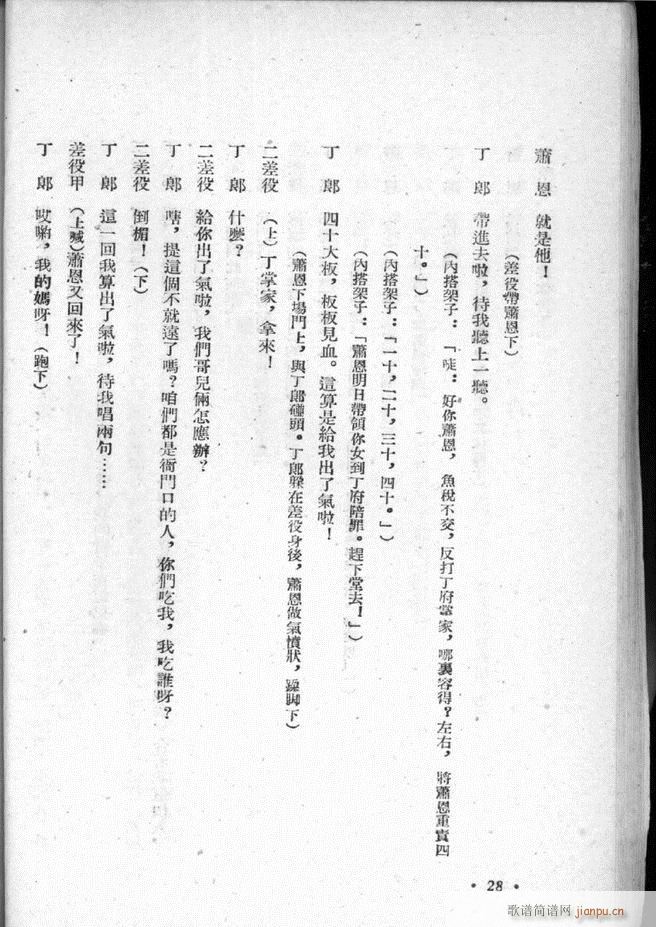 蕭　恩　就是他！
（差役帶蕭恩下）
丁　郎　帶進去啦，待我聽上一聽。
（內搭架子：「唗：好你蕭恩，魚稅不交，反打丁府當家，哪裏容得？左右，將蕭恩重責四
十。」）
（內搭架子：「一十，二十，三十，四十。」）
（內搭架子：「蕭恩明日帶領你女到丁府陪罪。趕下堂去！」）
丁　郎　四十大板，板板見血。這算是給我出了氣啦！
（蕭恩下場門上，與丁郎碰頭。丁郎躲在差役身後，蕭恩做氣憤狀，跺脚下）
二差役　（上）丁掌家，拿來！
丁　郎　什麽？
二差役　給你出了氣啦，我們哥兒倆怎應辦？
丁　郎　嗐，提這個不就遠了嗎？咱們都是衙門口的人，你們吃我，我吃誰呀？
二差役　倒楣！（下）
丁　郎　這一回我算出了氣啦，待我唱兩句……
差役甲　（上喊）蕭恩又回來了！
丁　郎　哎喲，我的媽呀！（跑下）
• 28 •
歌谱简谱网 jianpu.cn